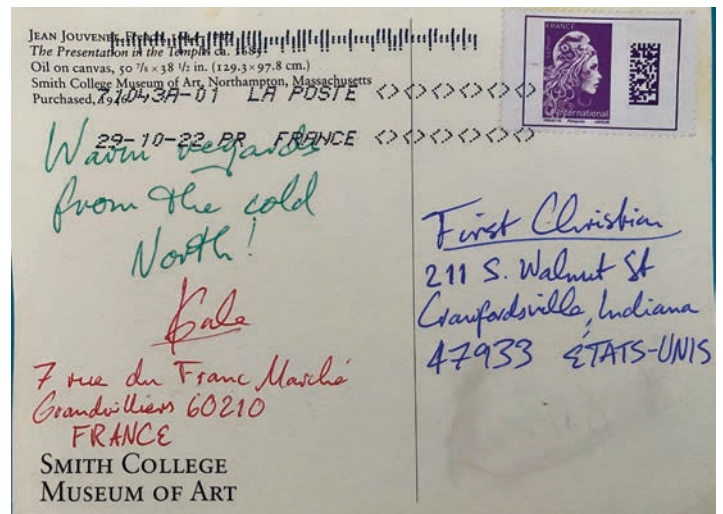 JEAN JOUVENET,
The Presentation in the Temple, ca. 1685
Oil on canvas, 50 7/8 × 38 1/2 in. (129.3 × 97.8 cm.)
Smith College Museum of Art, Northampton, Massachusetts
Purchased,
71043A-01 LA POSTE
29-10-22 BR FRANCE
FRANCE
International
Warm regards
from the cold
North!
7 rue du Franc Marché
Grandvilliers 60210
FRANCE
SMITH COLLEGE
MUSEUM OF ART
First Christian
211 S. Walnut St
Crawfordsville, Indiana
47933 ÉTATS-UNIS